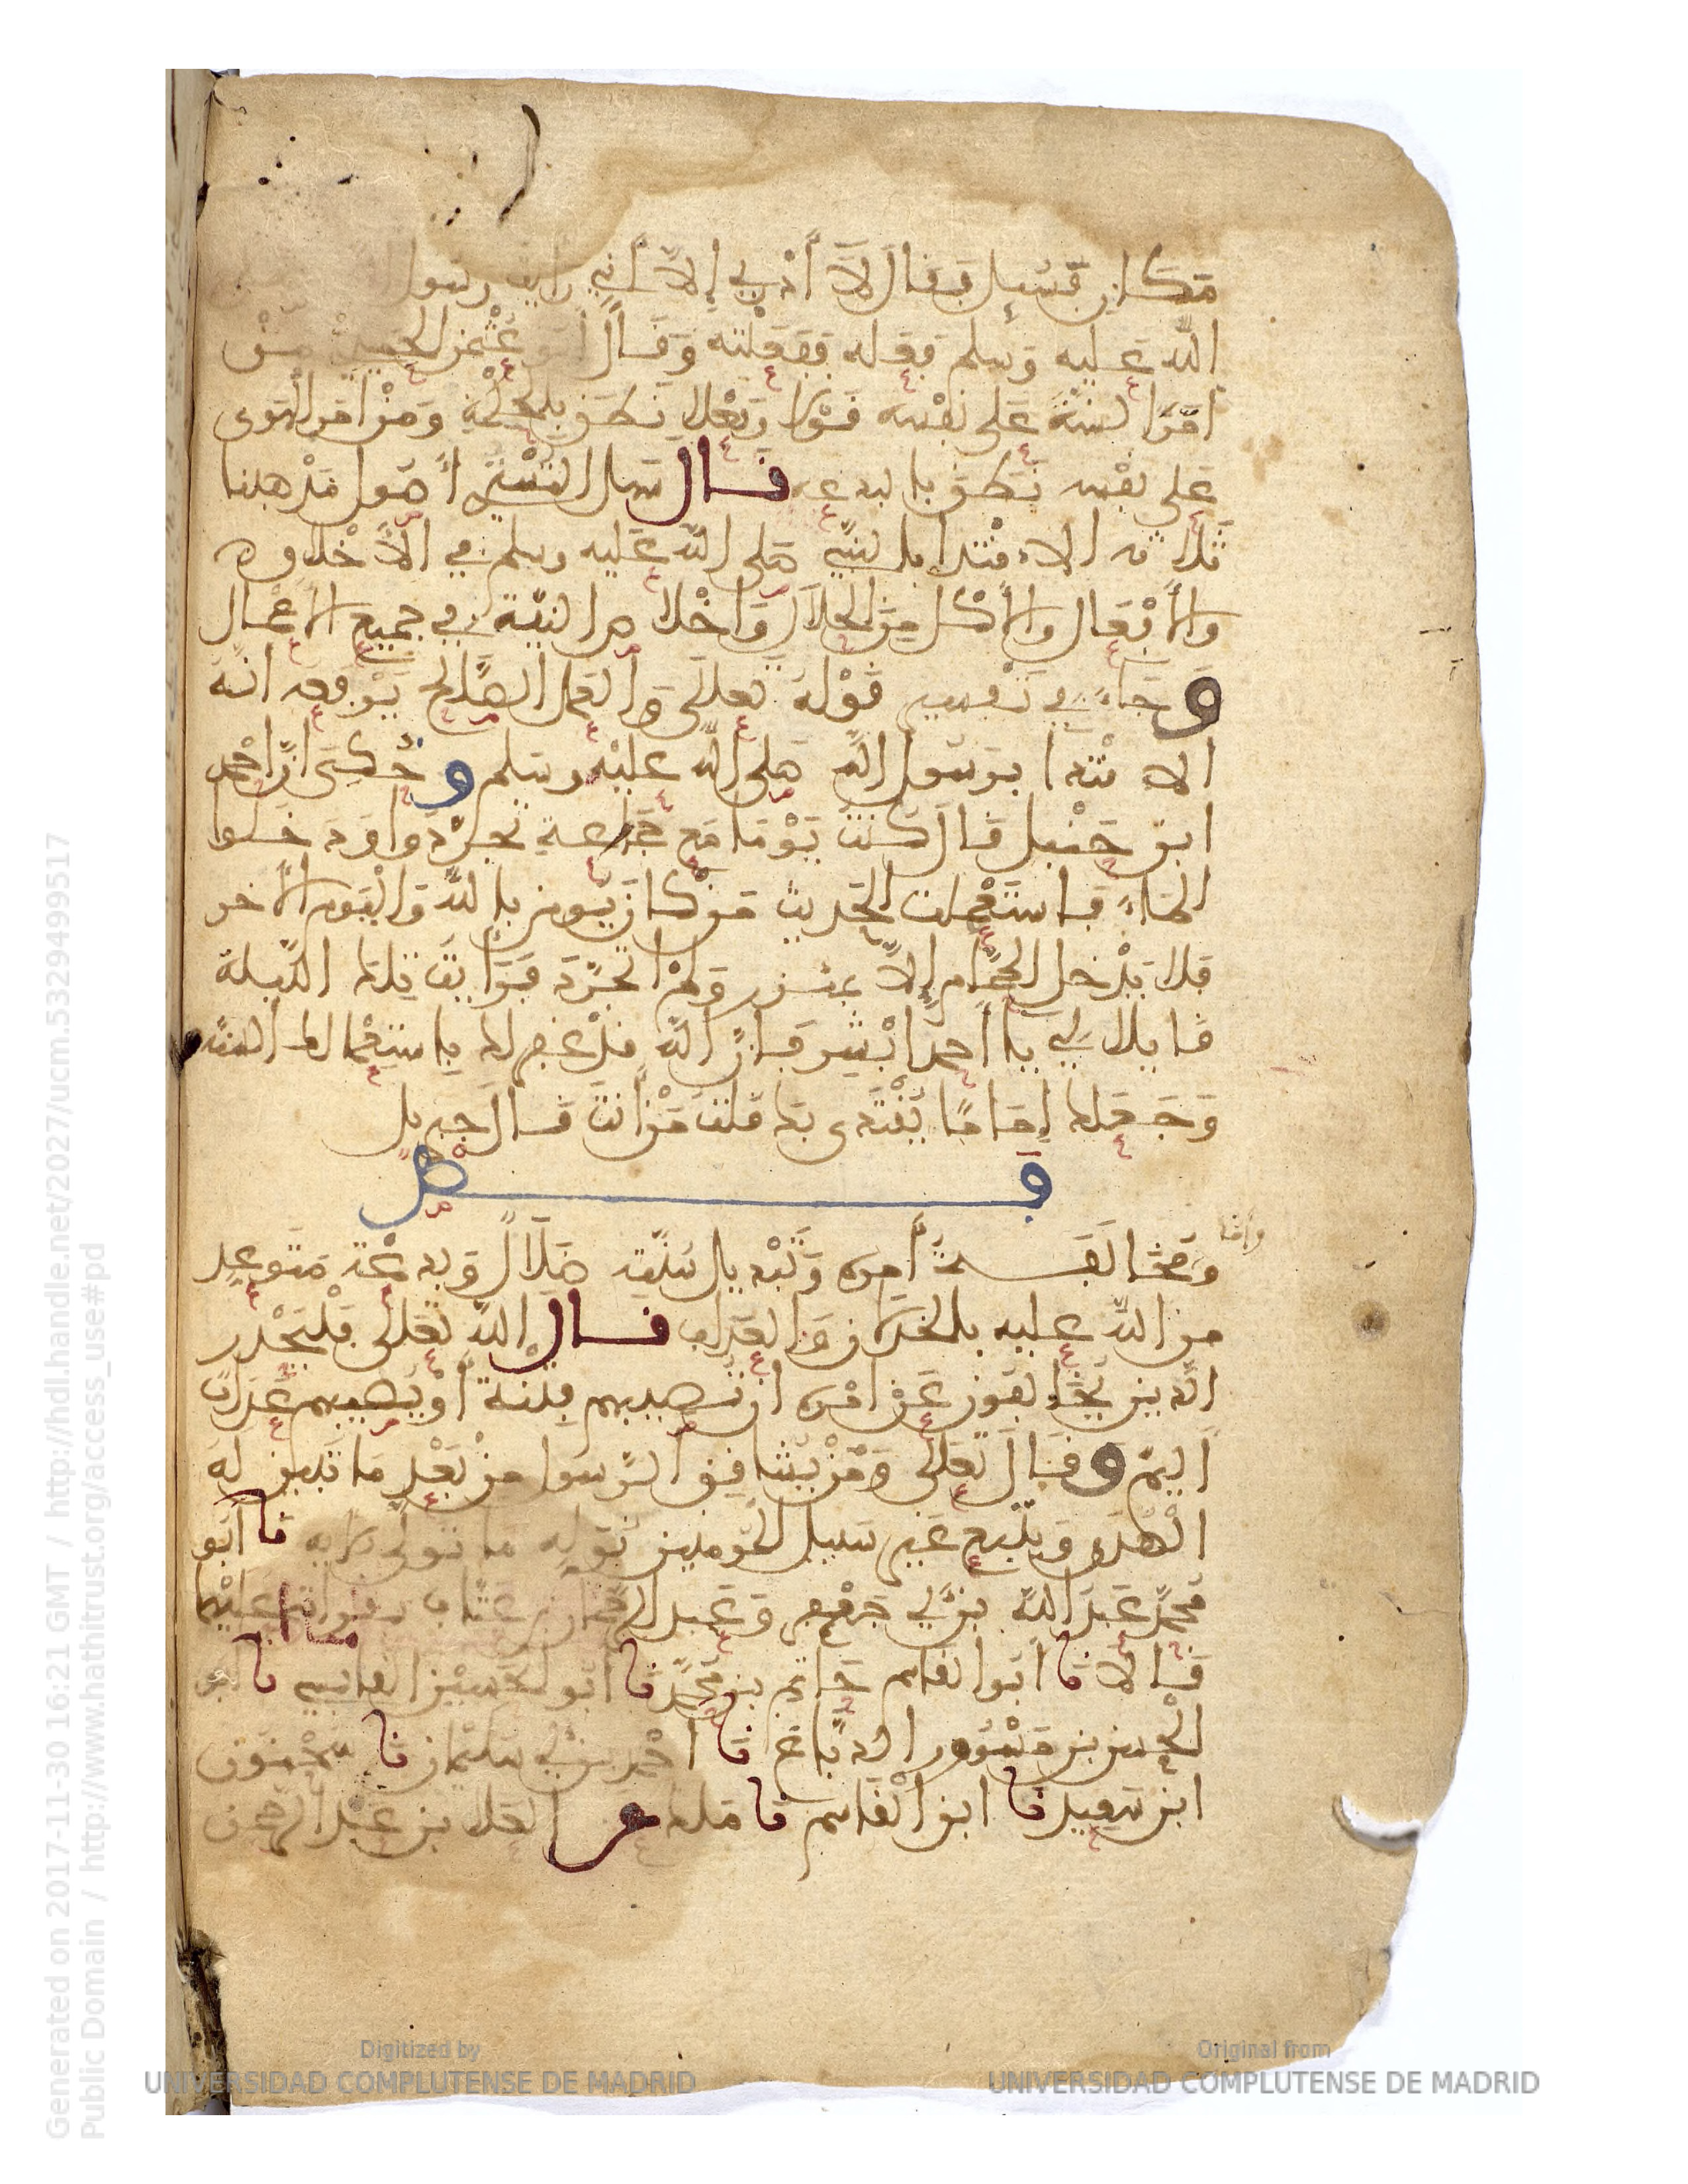 مكان فسئل فقال لا أدري إلا أني رأيت رسول
الله عليه وسلم فعله ففعلته وقال أبو عثمن الحيري من
امر السنة على نفسه قولا وفعلا نطق بالحكمة ومن امر الهوى
على نفسه نطق بالبدعة قال سهل التستري أصول مذهبنا
ثلاثة الاقتدا بالنبي صلى الله عليه وسلم في الأخلاق
والأفعال والأكل من الحلال وإخلاص النية في جميع الأعمال
وجاء في تفسير قوله تعالى والعمل الصالح يرفعه انه
الاقتدا برسول الله صلى الله عليه وسلم وحكي ان احمد
ابن حنبل قال كنت يوما مع جماعة تجردوا ودخلوا
الماء فاستعملت الحديث من كان يومن بالله واليوم الأخر
فلا يدخل الحمام إلا بمئزر ولم اتجرد فرأيت تلك الليلة
قايلا لي يا أحمد أبشر فإن الله قد غفر لك باستعمالك السنة
وجعلك إماما يقتدى بك قلت من أنت قال جبريل
فصل
وأما
ومخالفة أمره وتبديل سنته ضلال وبدعة متوعد
من الله عليه بالخذلان والعذاب قال الله تعالى فليحذر
الذين يخالفون عن امره ان تصيبهم فتنة أو يصيبهم عذاب
أليم وقال تعالى ومن يشاقق الرسول من بعد ما تبين له
الهدى ويتبع غير سبيل المومنين نوله ما تولى الآية نا أبو
محمد عبد الله بن أبي جعفر وعبد الرحمان بن عتاب بقراتي عليهما
قالا نا أبو القاسم حاتم بن محمد نا أبو الحسن القابسي نا أبو
الحسن بن مسرور الدباغ نا احمد بن أبي سليمان نا سحنون
ابن سعيد نا ابن القاسم نا ملك عن العلا بن عبد الرحمن
Generated on 2017-11-30 16:21 GMT / http://hdl.handle.net/2027/ucm.5329499517
Public Domain / http://www.hathitrust.org/access_use#pd
Digitized by
UNIVERSIDAD COMPLUTENSE DE MADRID
Original from
UNIVERSIDAD COMPLUTENSE DE MADRID